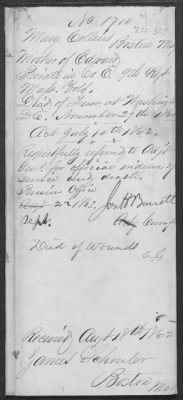 No 1710
Mary Collins Boston Ms
Mother of Edward
Private in Co E. 9th Regt
Mass. Vols.
Died of            at Washington
D.C. November 29th 1862
Act July 14th 1862.
Respectfully referred to Adjt
Genl for official evidence of
service and death.
Pension Office
22 1862. Jos H Barrett
Sept. Comr
Died of Wounds
Received Aug 18th 1862
James Schouler
Boston
Mass